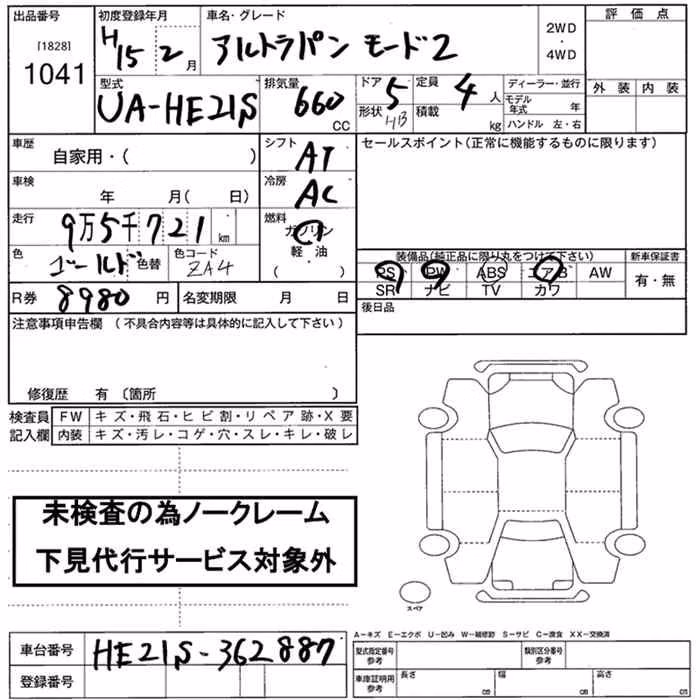 出品番号 初度登録年月 車名・グレード 評価点
[1828] H15 2月 アルトラパン モード2 2WD・4WD
1041
型式 排気量 ドア 定員 ディーラー・並行 外装 内装
UA-HE21S 660 CC 5 4人 モデル年式 年
形状 HB 積載 kg ハンドル 左・右
車歴 シフト セールスポイント(正常に機能するものに限ります)
自家用・( ) AT
車検 冷房
年 月( 日) AC
走行 燃料
9万5千721 km ガソリン
色 色コード 軽・油
ゴールド 色替 ZA4 ( )
装備品(純正品に限り丸をつけて下さい) 新車保証書
PS PW ABS エアB AW 有・無
SR ナビ TV カワ
R券 8980円 名変期限 月 日 後日品
注意事項申告欄 (不具合内容等は具体的に記入して下さい)
修復歴 有 〔箇所 〕
検査員 FW キズ・飛石・ヒビ割・リペア跡・X要
記入欄 内装 キズ・汚レ・コゲ・穴・スレ・キレ・破レ
未検査の為ノークレーム
下見代行サービス対象外
スペア
A-キズ E-エクボ U-凹み W-補修跡 S-サビ C-腐食 XX-交換済
車台番号 HE21S-362887 型式指定番号 参考 類別区分番号 参考
登録番号 車庫証明用 参考 長さ cm 幅 cm 高さ cm